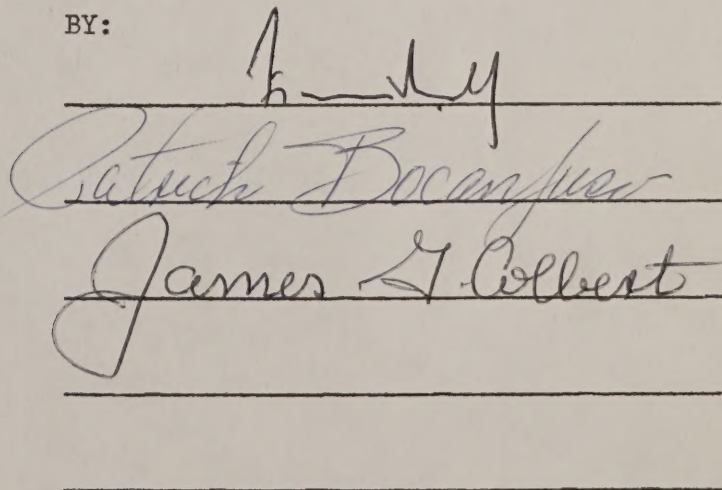 BY:
Patrick Bocanfuso
James G. Colbert